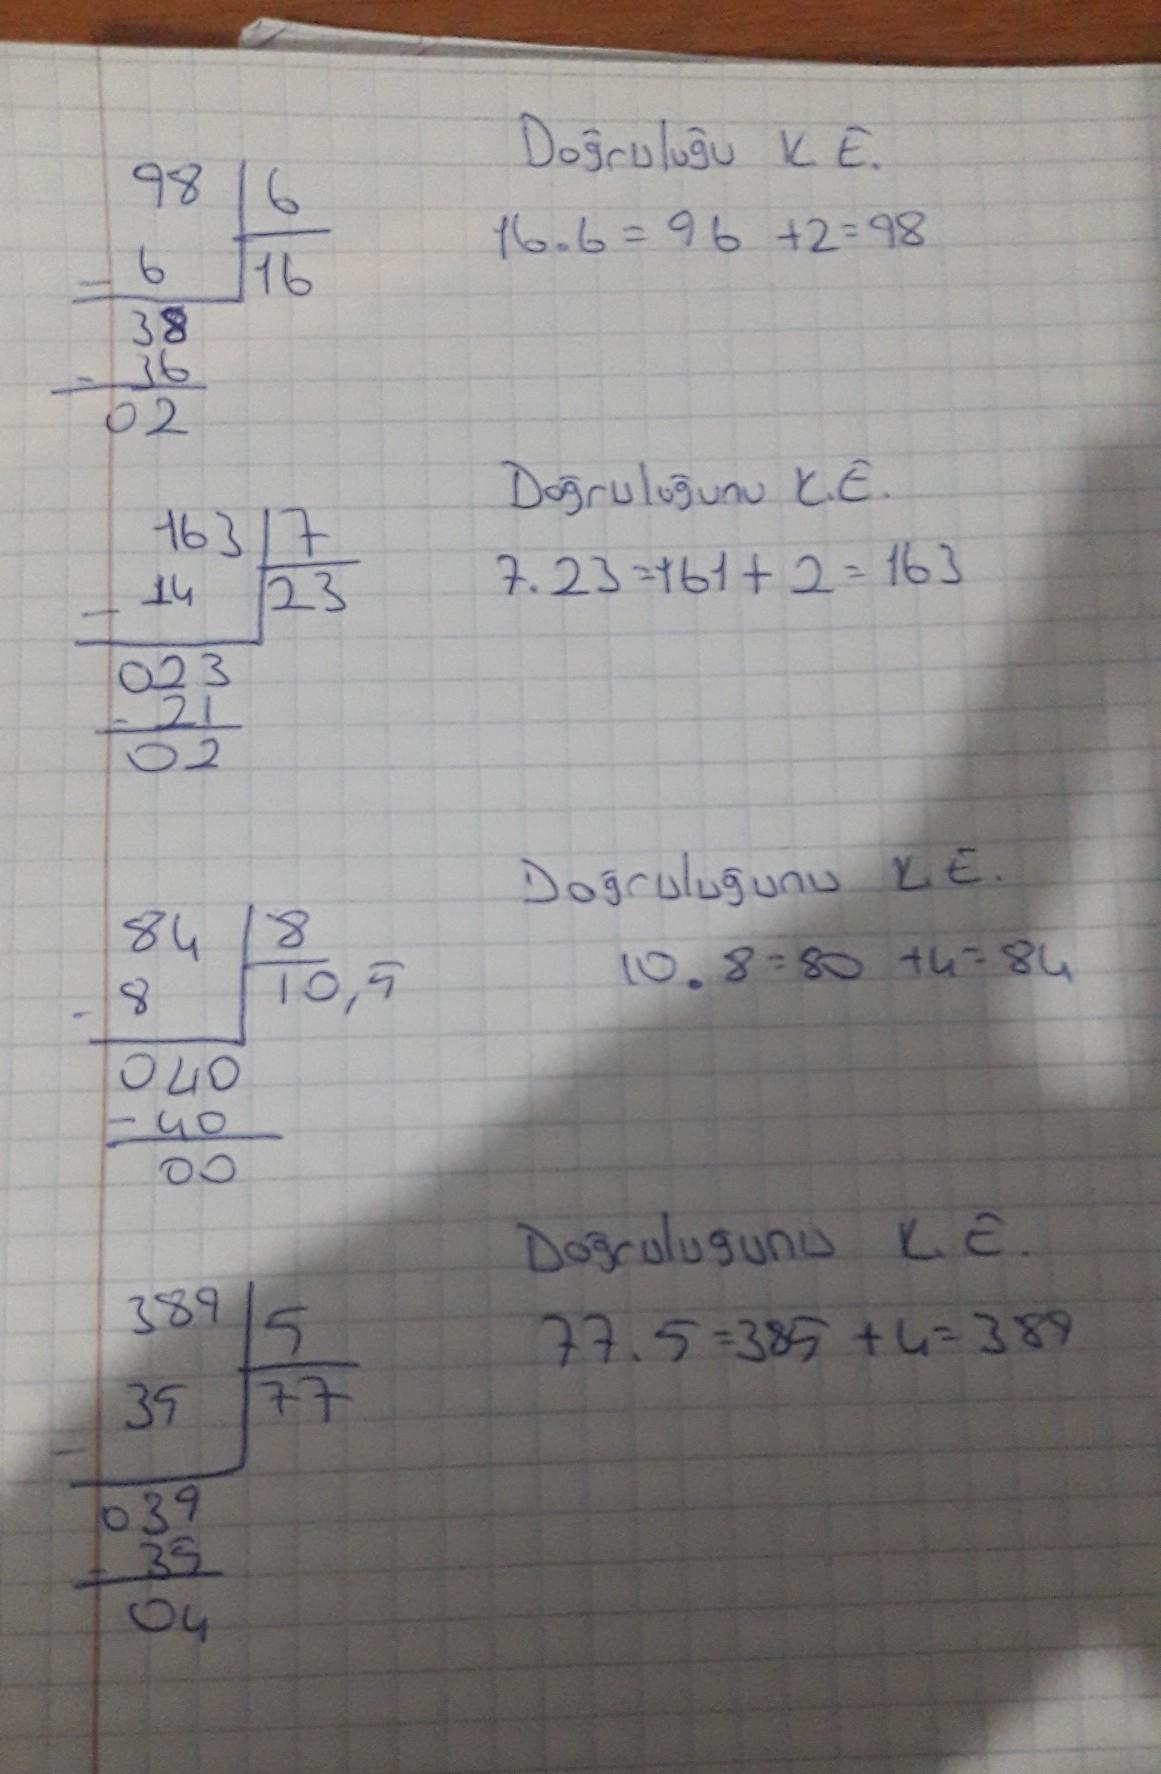 Doğruluğu K.E.
98 | 6
16.6=96 +2=98
- 6 | 16
38
- 36
02
Doğruluğunu K.E.
163 | 7
7.23=161+2=163
- 14 | 23
023
- 21
02
Doğruluğunu K.E.
84 | 8
10.8=80 +4=84
- 8 | 10,5
040
- 40
00
Doğruluğunu K.E.
389 | 5
77.5=385+4=389
- 35 | 77
039
- 35
04